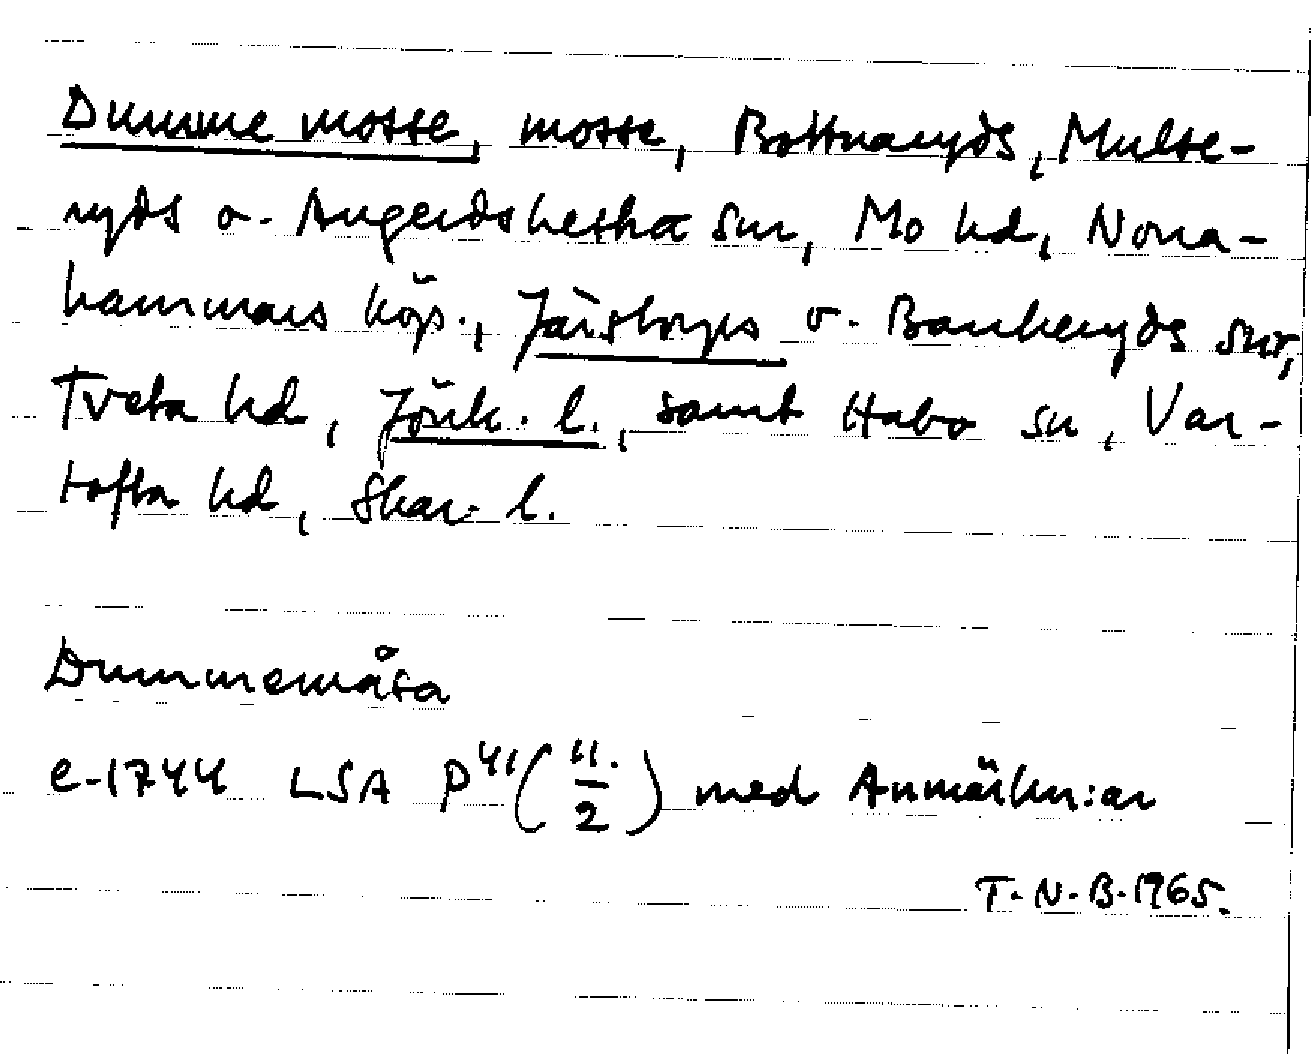 Dumme mosse, mosse, Bottnaryds, Mulse-
ryds o. Angerdshestra snr, Mo hd, Norra-
hammars köp., Järstorps o. Bankeryds snr,
Tveta hd, Jönk. l., samt Habo sn, Var-
tofta hd, Skar. l.
Dummemåsa
e-1744 LSA P41 (11./2) med Anmärkn:ar
T.N.B. 1965.